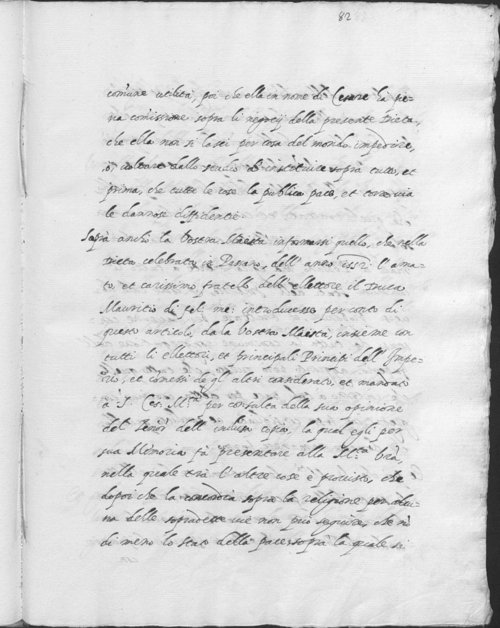 82
comune utilità, poi che ella in nome di Cesare ha pie-
na comissione sopra li negocij della presente Dieta,
che ella non si lasci per cosa del mondo impedire,
ò voltare dallo studio di instituire sopra tutto, et
prima, che tutte le cose la publica pace, et torre via
le dannose diffidentie
Saprà ancho la Vostra Maestà informarsi quello, che nella
Dieta celebrata in Passavo, dell' anno 1552. l'ama-
to, et carissimo fratello dell' ellettore il Duca
Mauritio di fel. me: introducesse per conto di
questo articolo, da la Vostra Maestà, insieme con
tutti li ellettori, et Principali Principi dell' Impe-
rio, et comessi degl' altri considerato, et mandato
à S. Ces. M.tà per consulta della sua opinione
del tenor dell' inclusa copia, la qual egli per
sua Memoria fà presentare alla M.tà
nella quale trà l'altre cose è provisto, che
dapoi che la concordia sopra la religione per alcu-
na delle sopradette vie non può seguire, che nō
di meno lo stato della pace sopra la quale si